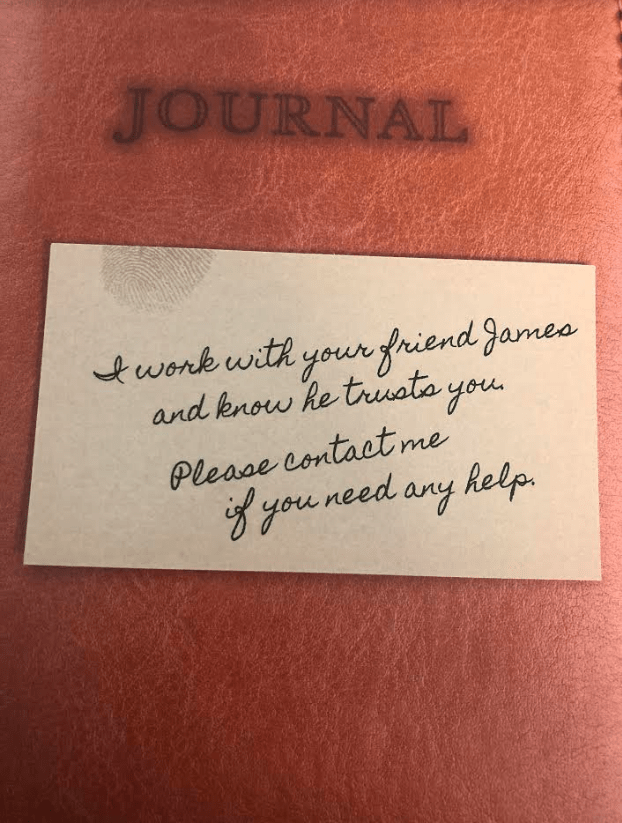 JOURNAL
I work with your friend James
and know he trusts you.
Please contact me
if you need any help.